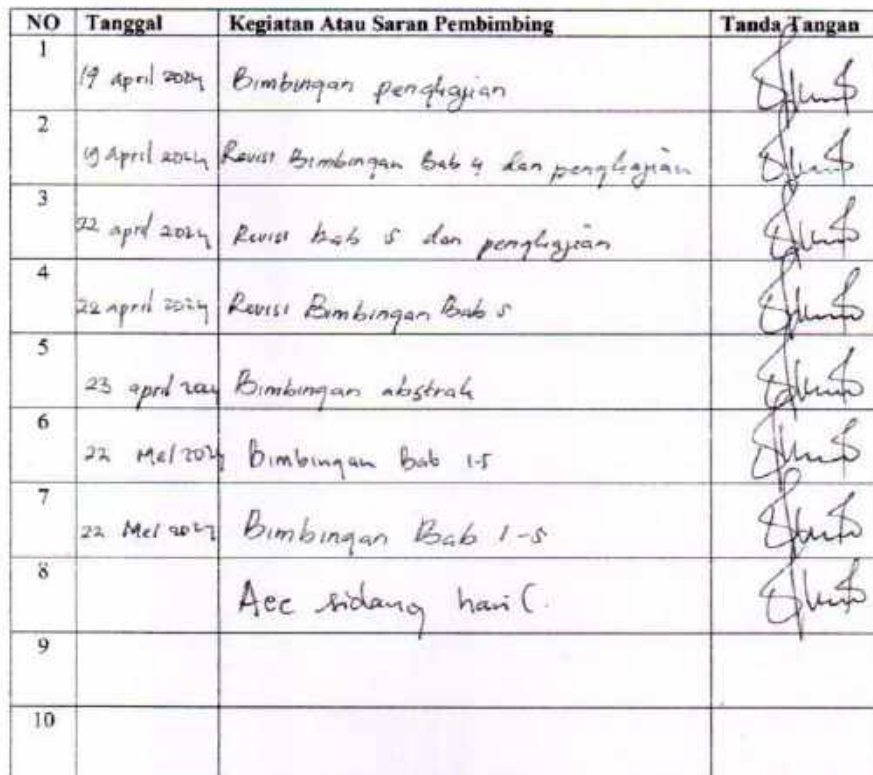 NO Tanggal Kegiatan Atau Saran Pembimbing Tanda Tangan
1 19 april 2024 Bimbingan pengkajian
2 19 april 2024 Revisi Bimbingan Bab 4 dan pengkajian
3 22 april 2024 Revisi bab 5 dan pengkajian
4 22 april 2024 Revisi Bimbingan Bab 5
5 23 april 2024 Bimbingan abstrak
6 22 Mei 2024 Bimbingan Bab 1-5
7 22 Mei 2024 Bimbingan Bab 1-5
8 Acc sidang hasil
9
10